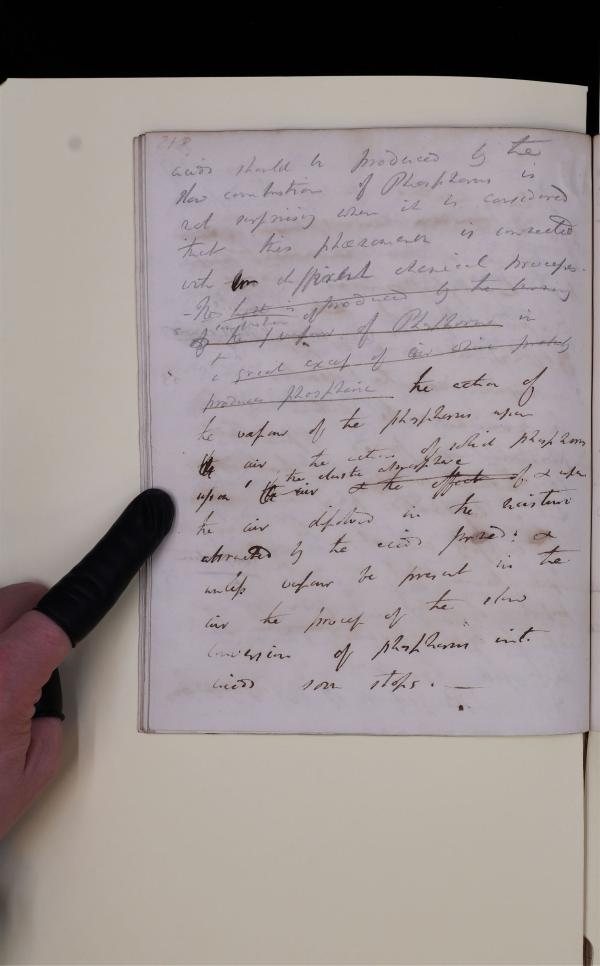 218
acids should be produced by the
slow combustion of Phosphorus is
not surprising when it is considered
that this phænomenon is connected
with different chemical processes.
- The first is produced by the burning
combustion of
of the vapour of Phosphorus in
a great excess of air which probably
produces phosphoric the action of
the vapour of the phosphorus upon
the air the action of solid phosphorus
the elastic atmosphere
upon the air & the effect of & upon
the air dissolved in the moisture
attracted by the acids formed: &
unless vapour be present in the
air the process of the slow
conversion of phosphorus into
acids soon stops. —